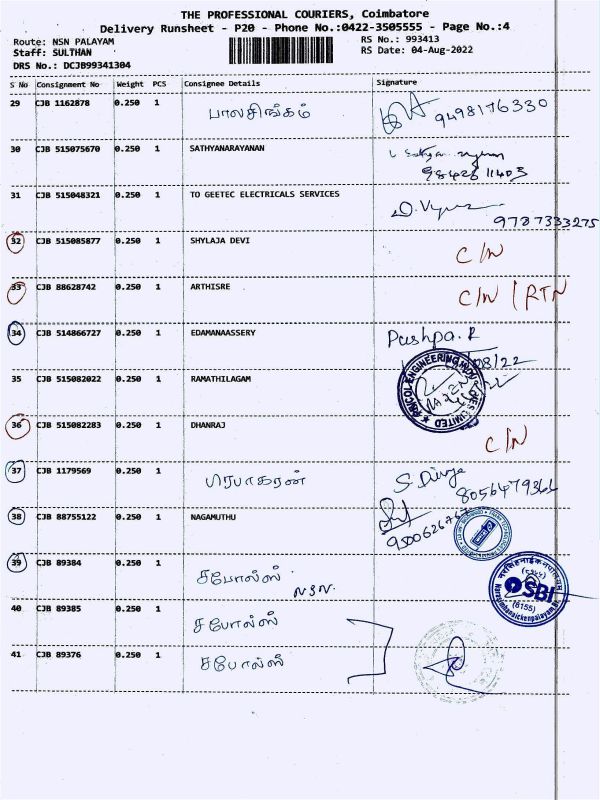 THE PROFESSIONAL COURIERS, Coimbatore
Delivery Runsheet - P20 - Phone No.:0422-3505555 - Page No.:4
Route: NSN PALAYAM
RS No.: 993413
Staff: SULTHAN
RS Date: 04-Aug-2022
DRS No.: DCJB99341304
S No Consignment No Weight PCS Consignee Details Signature
29 CJB 1162878 0.250 1 பாலசிங்கம் 9498176330
30 CJB 515075670 0.250 1 SATHYANARAYANAN
31 CJB 515048321 0.250 1 TO GEETEC ELECTRICALS SERVICES
9787333275
32 CJB 515085877 0.250 1 SHYLAJA DEVI C/N
33 CJB 88628742 0.250 1 ARTHISRE C/N / RTN
34 CJB 514866727 0.250 1 EDAMANAASSERY Pushpa.R
08/22
35 CJB 515082022 0.250 1 RAMATHILAGAM
36 CJB 515082283 0.250 1 DHANRAJ C/N
37 CJB 1179569 0.250 1 பிரபாகரன் S. Divya
38 CJB 88755122 0.250 1 NAGAMUTHU
39 CJB 89384 0.250 1 சபோல்ஸ் NSN.
SBI
40 CJB 89385 0.250 1 சபோல்ஸ்
41 CJB 89376 0.250 1 சபோல்ஸ்